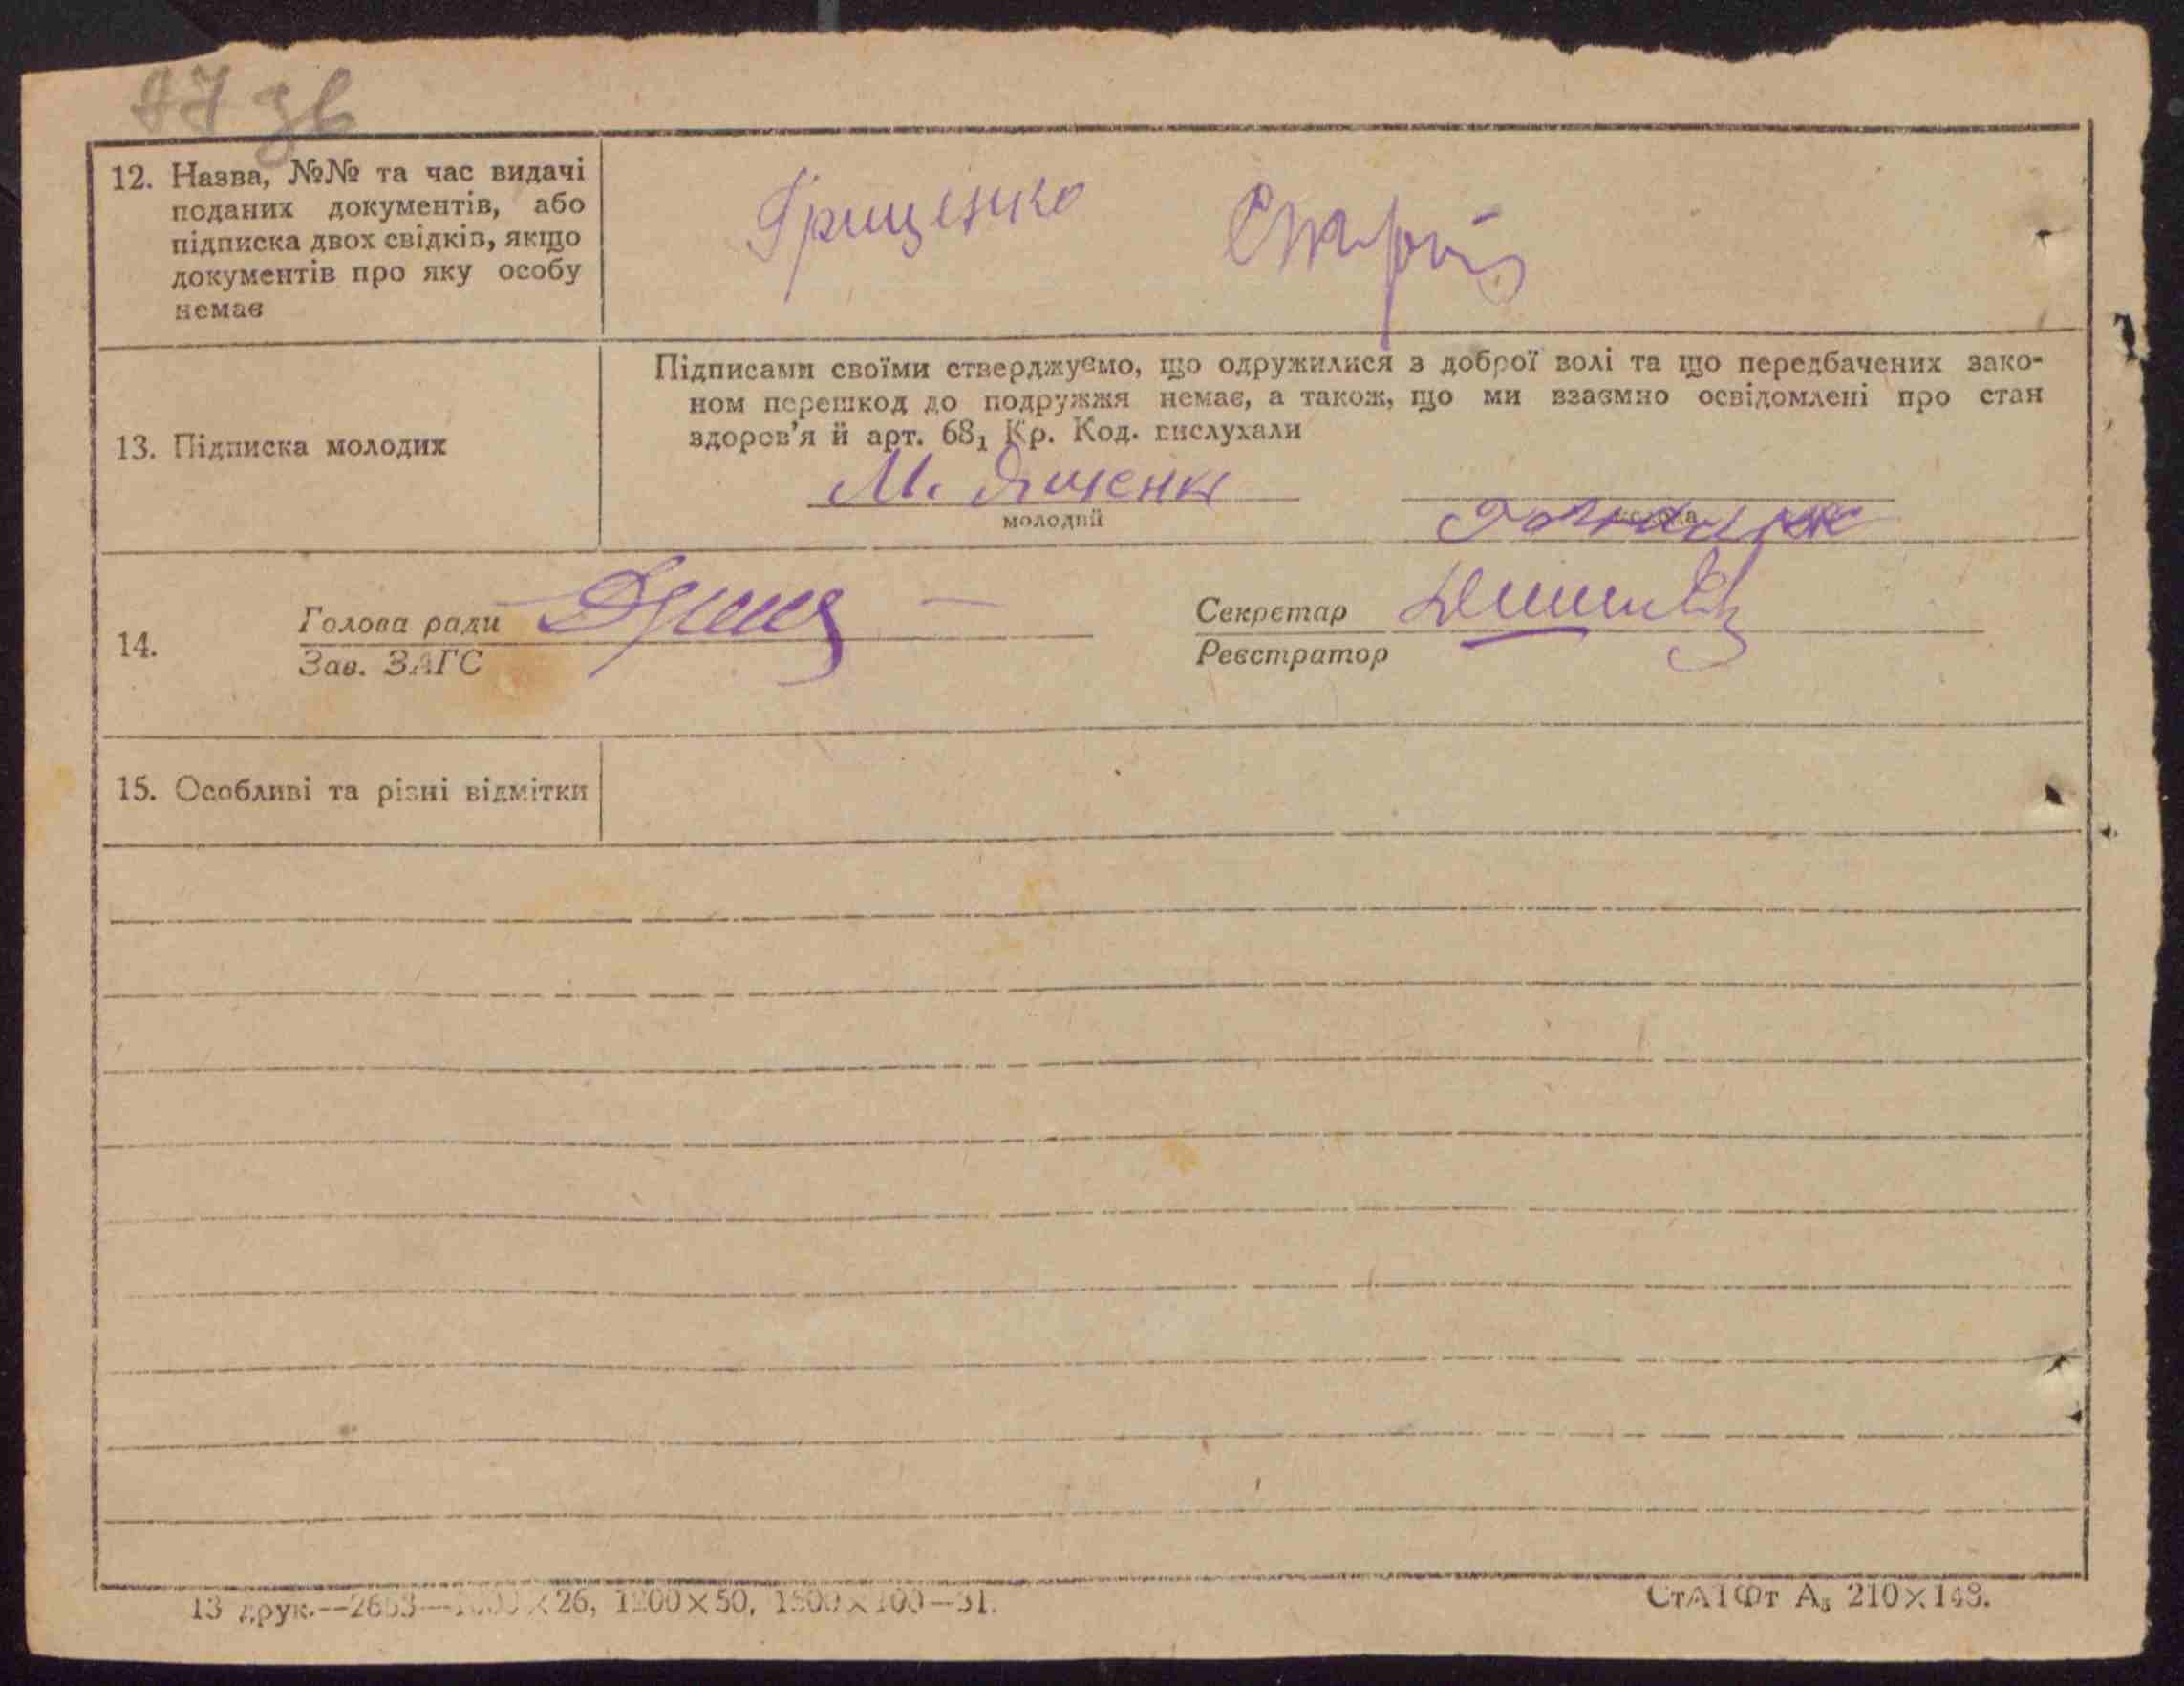 87 зв
12. Назва, №№ та час видачі
поданих документів, або
підписка двох свідків, якщо
документів про яку особу
немає
Грищенко
13. Підписка молодих
Підписами своїми стверджуємо, що одружилися з доброї волі та що передбачених зако-
ном перешкод до подружжя немає, а також, що ми взаємно освідомлені про стан
здоров'я й арт. 68₁ Кр. Код. вислухали
М. Ященко
молодий
молода
14.
Голова ради
Зав. ЗАГС
Секретар
Реєстратор
15. Особливі та різні відмітки
13 друк.--2653-- ×26, 1200×50, 1500×100—31.
СтАТФт А₅ 210×148.